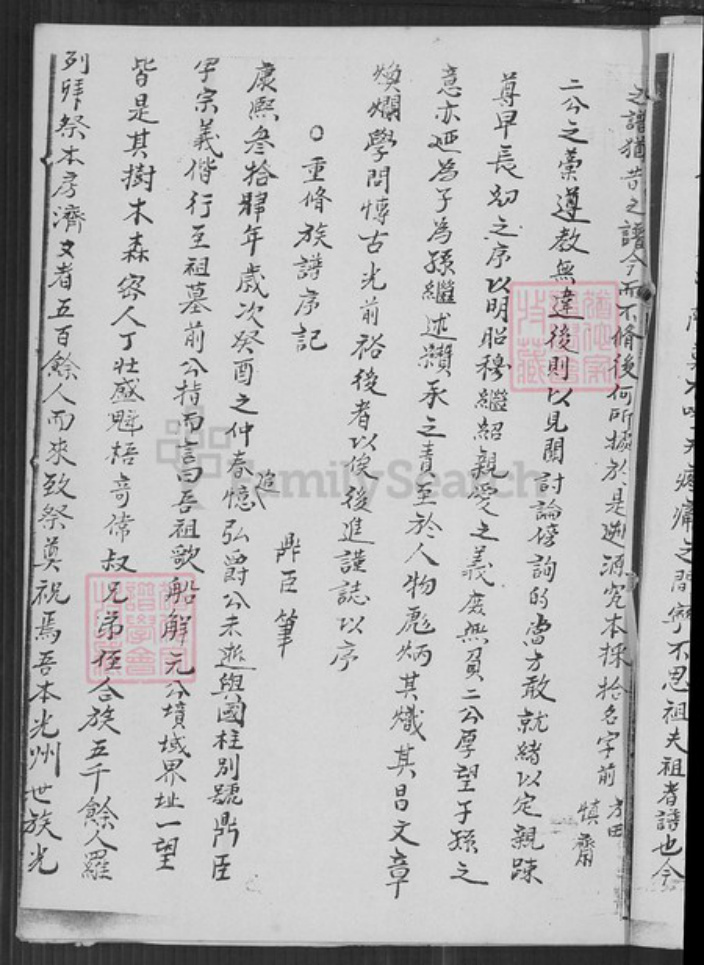 之譜猶昔之譜今而不脩後何所據於是遡源究本採拾名字前
方田
慎齋
二公之藁遵教無違後則以見聞討論榜詢的當方敢就緒以定親踈
尊早長幼之序以明昭穆繼紹親愛之義庶無負二公厚望子孫之
意亦延為子為孫繼述纘承之責至於人物彪炳其熾其昌文章
煥爛學問博古光前裕後者以俟後進謹誌以序
○重脩族譜序記
鼎臣筆
康熙叁拾肆年歲次癸酉之仲春追憶弘爵公未逝與國柱別號鼎臣
字宗義偕行至祖墓前公指而言曰吾祖歌船解元公墳域界址一望
皆是其樹木森密人丁壯盛魁梧奇偉叔兄弟侄合族五千餘人羅
列拜祭本房濟文者五百餘人而來致祭奠祝焉吾本光州世族光
疼痛之間寧不思祖夫祖者譜也今
FamilySearch